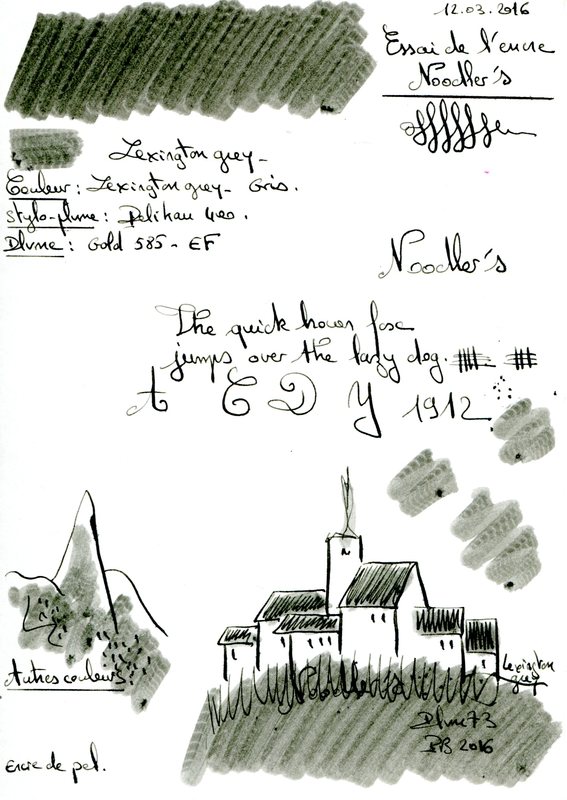 12.03.2016
Essai de l'encre
Noodler's
Lexington grey_
Couleur : Lexington grey_ Gris.
Stylo-plume : Pelikan 400.
Plume : Gold 585 - EF
Noodler's
The quick fox
jumps over the lazy dog.
A C D Y 1912
Autres couleurs
Lexington
grey
Noodler's
Plume 73
PB 2016
Encre de